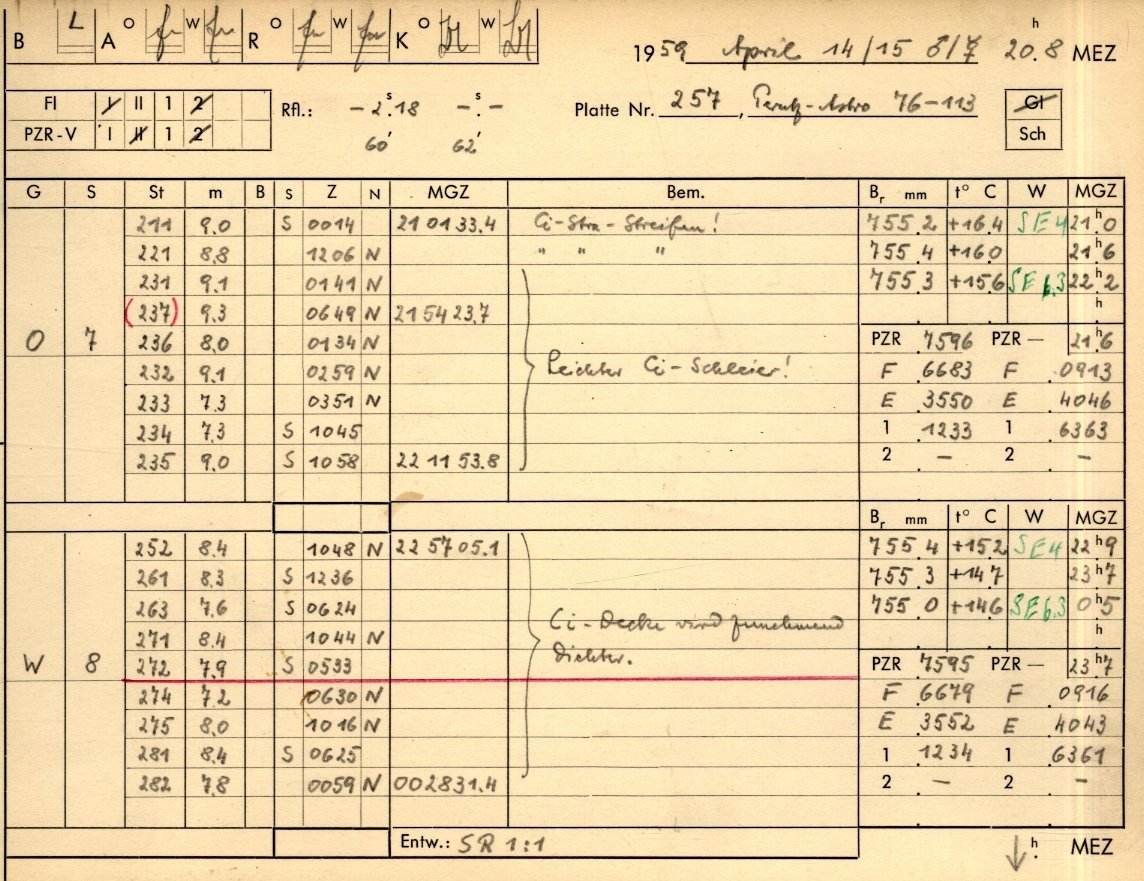 B L A o W R o W K o W
1959 April 14/15 ♂/☿ 20.8 h MEZ
Fl I II 1 2
Rfl.: -2.18 s - s. -
Platte Nr. 257, Perutz-Astro 76-113
Gl
PZR-V I II 1 2
60' 62'
Sch
G S St m B S Z N MGZ Bem. Br mm t° C W MGZ
211 9.0 S 0014 21 01 33.4 Ci-Str-Streifen! 755.2 +16.4 SE4 21h0
221 8.8 1206 N " " " 755.4 +16.0 21h6
231 9.1 0141 N 755.3 +15.6 SE 6.3 22h2
(237) 9.3 0649 N 21 54 23.7 h
O 7 236 8.0 0134 N PZR 7596 PZR — 21h6
232 9.1 0259 N Leichter Ci-Schleier! F .6683 F .0913
233 7.3 0351 N E .3550 E .4046
234 7.3 S 1045 1 .1233 1 .6363
235 9.0 S 1058 22 11 53.8 2 . — 2 . —
Br mm t° C W MGZ
252 8.4 1048 N 22 57 05.1 755.4 +15.2 SE4 22h9
261 8.3 S 1236 755.3 +14.7 23h7
263 7.6 S 0624 Ci-Decke wird zunehmend 755.0 +14.6 SE6.3 0h5
271 8.4 1044 N dichter. h
W 8 272 7.9 S 0533 PZR 7595 PZR — 23h7
274 7.2 0630 N F .6679 F .0916
275 8.0 1016 N E .3552 E .4043
281 8.4 S 0625 1 .1234 1 .6361
282 7.8 0059 N 00 28 31.4 2 . — 2 . —
Entw.: SR 1:1 ↓ h. MEZ